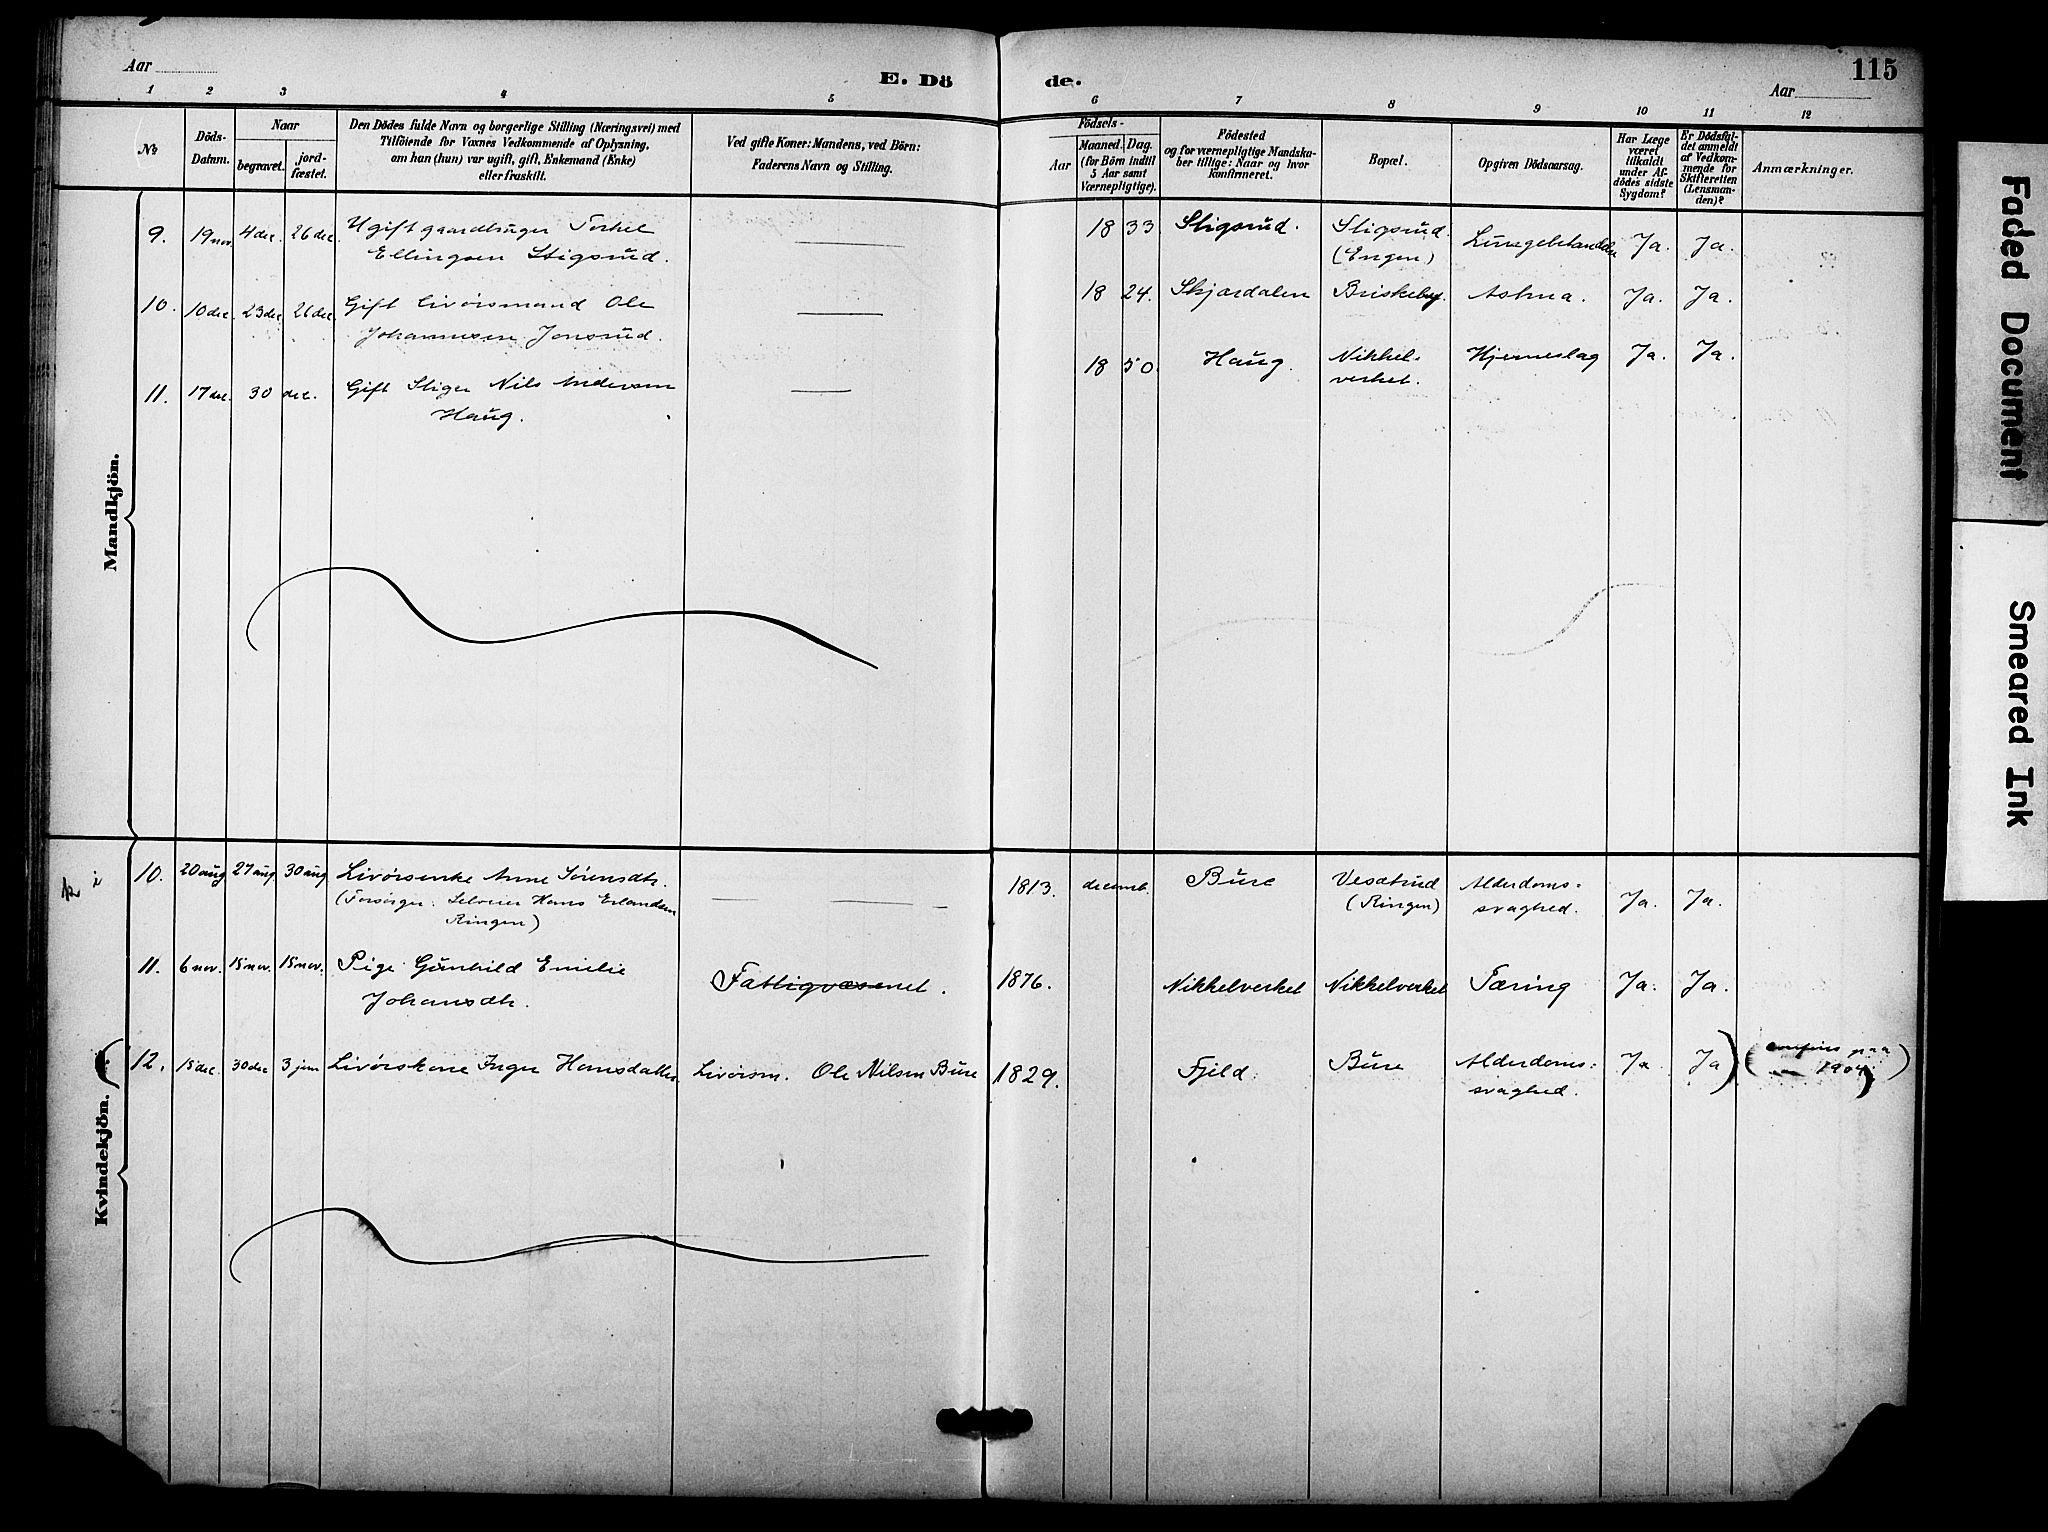 Aar
E. Dö
de.
115
Aar
1 2 3 4 5 6 7 8 9 10 11 12
No
Döds-
Datum.
Naar
begravet.
jord-
fæstet.
Den Dödes fulde Navn og borgerlige Stilling (Næringsvei) med
Tilföiende for Voxnes Vedkommende af Oplysning,
om han (hun) var ugift, gift, Enkemand (Enke)
eller fraskilt.
Ved gifte Koner: Mandens, ved Börn:
Faderens Navn og Stilling.
Födsels-
Aar
Maaned. Dag.
(for Börn indtil
5 Aar samt
Værnepligtige).
Födested
og for værnepligtige Mandska-
ber tillige: Naar og hvor
konfirmeret.
Bopæl.
Opgiven Dödsaarsag.
Har Læge
været
tilkaldt
under Af-
dödes sidste
Sygdom?
Er Dödsfal-
det anmeldt
af Vedkom-
mende for
Skifteretten
(Lensman-
den)?
Anmærkninger.
Mandkjön.
9. 19 nov. 4 dec. 26 dec. Ugift gaardbruger Torkel
Ellingsen Stigsrud.
1833 Stigsrud. Stigsrud.
(Engen) Ja. Ja.
10. 10 dec. 23 dec. 26 dec. Gift livörsmand Ole
Johannesen Jonsrud.
1824. Skjærdalen Briskeby. Astma. Ja. Ja.
11. 17 dec. 30 dec. Gift Stiger Nils Andersen
Haug.
1850. Haug. Nikkel-
verket. Hjerneslag Ja. Ja.
Kvindekjön.
10. 20 aug 27 aug. 30 aug Livörsenke Anne Sörensdtr.
(Forsörger: Selveier Hans Erlandsen
Ringen)
1813. decemb. Bure Vesetrud
(Ringen) Alderdoms-
svaghed. Ja. Ja.
11. 6 nov. 15 nov. 15 nov. Pige Gunhild Emilie
Johansdtr.
Fattigvæsenet.
1876. Nikkelverket Nikkelverket Tæring Ja. Ja.
12. 15 dec. 30 dec 3 jan Livörskone Inger Hansdatter
Livörsm. Ole Nilsen Bure
1829. Fjeld. Bure Alderdoms-
svaghed. Ja Ja
paa
1904
Faded Document
Smeared Ink